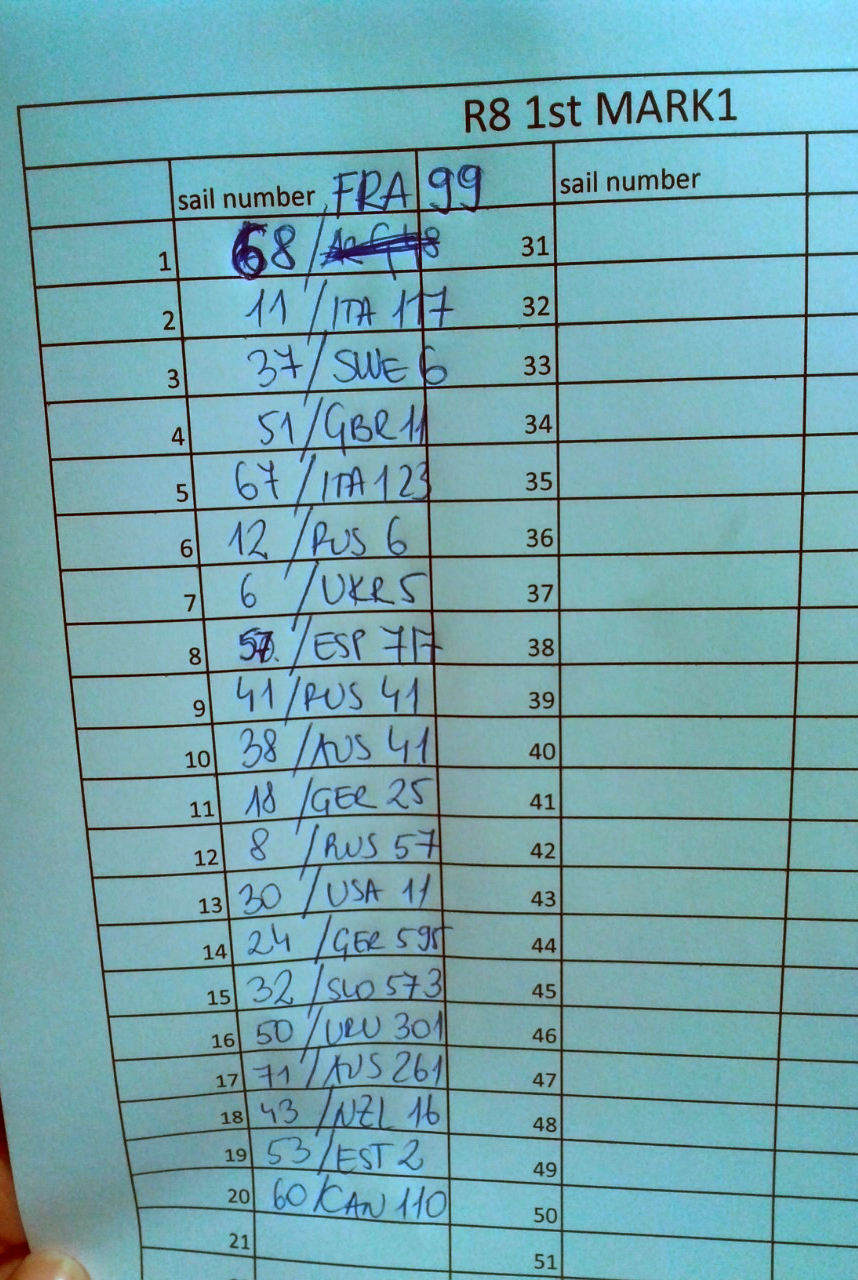 R8 1st MARK1
sail number FRA 99 sail number
1 68 / 31
2 11 / ITA 117 32
3 37 / SWE 6 33
4 51 / GBR 11 34
5 67 / ITA 123 35
6 12 / RUS 6 36
7 6 / UKR 5 37
8 57. / ESP 717 38
9 41 / RUS 41 39
10 38 / AUS 41 40
11 18 / GER 25 41
12 8 / RUS 57 42
13 30 / USA 11 43
14 24 / GER 595 44
15 32 / SLO 573 45
16 50 / URU 301 46
17 71 / AUS 261 47
18 43 / NZL 16 48
19 53 / EST 2 49
20 60 / CAN 110 50
21 51